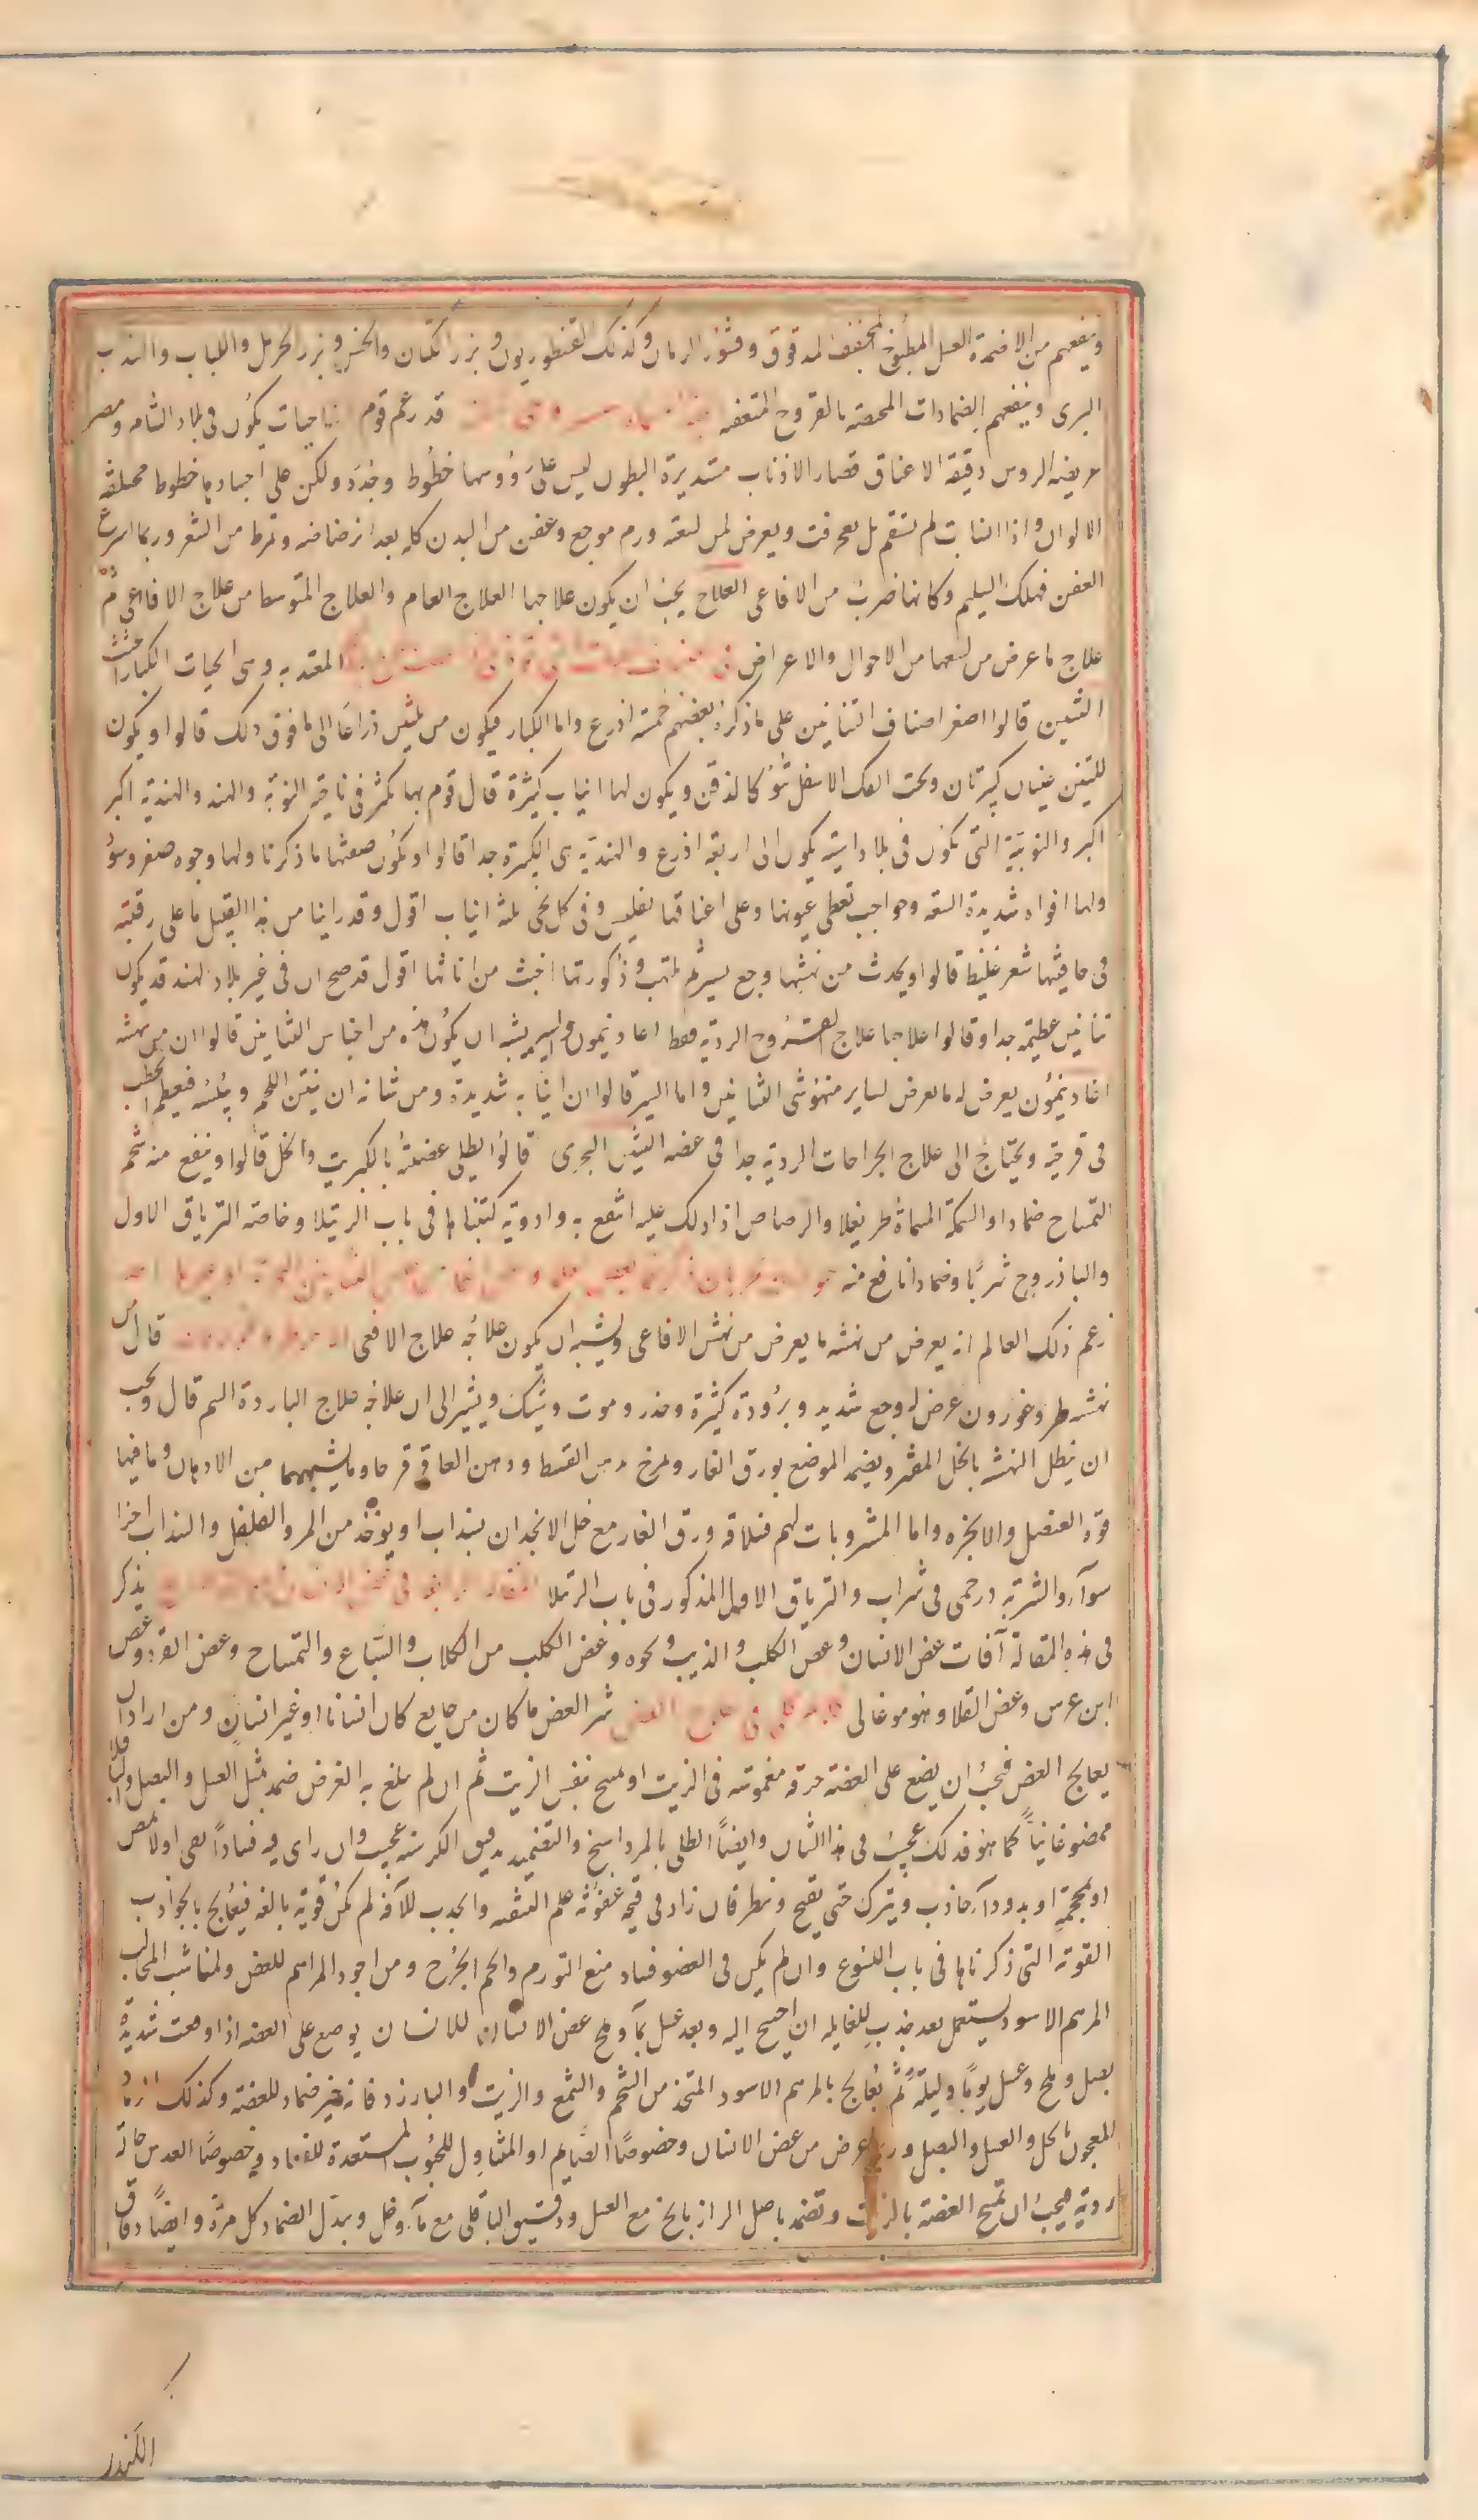 وينفعهم من الاضمدة العسل المطبوخ المجفف المدقوق وقشور الرمان وكذلك القنطوريون وبزر الكتان والخس وبزر الحرمل واللبلاب والسذاب
البرى وينفعهم الضمادات المختصة بالقروح المتعفنة قد زعم قوم ان حيات يكون فى بلاد الشام ومصر
عريضة الروس دقيقة الاعناق قصار الاذناب مستديرة البطون ليس على رؤوسها خطوط وجدد ولكن على اجسادها خطوط مختلفة
الالوان واذا انسابت لم تستقم بل تعرقت ويعرض لمن لسعته ورم موجع وعفن من البدن كله بعد ارضاضه وتمرط من الشعر وربما اسرع
العفن فهلك السليم وكانها ضرب من الافاعى العلاج يجب ان يكون علاجها العلاج العام والعلاج المتوسط من علاج الافاعى ثم
علاج ما عرض من لسعها من الاحوال والاعراض فى المعتدبه وهى الحيات الكبار الجثث
التنين قالوا اصغر اصناف التنانين على ما ذكره بعضهم خمسة اذرع واما الكبار فيكون من ثلثين ذراعا الى ما فوق ذلك قالوا ويكون
للتنين عينان كبيرتان وتحت الفك الاسفل نتؤ كالذقن ويكون لها انياب كثيرة قال قوم بها تكثر فى ناحية النوبة والهند والهندية اكبر
اكبر والنوبية التى تكون فى بلاد اسية يكون الى اربعة اذرع والهندية هى الكبيرة جدا قالوا ويكون صفتها ما ذكرنا ولها وجوه صفر وسود
ولها افواه شديدة السعة وحواجب تغطى عيونها وعلى اعناقها تفليس وفى كل لحى ثلثة انياب اقول وقد راينا من هذا القبيل ما على رقبته
فى حافيتها شعر غليظ قالوا ويحدث من نهشها وجع يسير ثم لهب وذكورتها اخبث من اناثها اقول قد صح ان فى غير بلاد الهند قد يكون
تنانين عظيمة جدا وقالوا علاجها علاج القروح الردية فقط اغاديمون واسير يشبه ان يكون هذه من اجناس التنانين قالوا ان من نهشه
اغاديمون يعرض له ما يعرض لساير منهوشى التنانين واما السير قالوا ان انيابه شديدة ومن شانه ان ينتن اللحم ويلبسه فيعظم الخطب
فى قرحته ويحتاج الى علاج الجراحات الردية جدا فى عضه التنين البحرى قالوا يطلى عضته بالكبريت والخل قالوا وينفع منه شحم
التمساح ضمادا والسمكة المسماة طريغلا والرصاص اذا دلك عليه انتفع به وادوية كتبناها فى باب الرتيلا وخاصة الترياق الاول
والباذروج شربا وضمادا نافع منه
زعم ذلك العالم انه يعرض من نهشه ما يعرض من نهش الافاعى ويشبه ان يكون علاجه علاج الافعى قال من
نهشه طروغورون عرض له وجع شديد وبرودة كثيرة وخدر وموت وشيك ويشير الى ان علاجه علاج الباردة السم قال ويجب
ان ينطل النهشه بالخل المفتر ويضمد الموضع بورق الغار ويمرخ بدهن القسط ودهن العاقر قرحا وما يشبههما من الادهان وما فيها
قوة العنصل والانجره واما المشروبات لهم فسلاقة ورق الغار مع خل الانجدان بسذاب او يوخذ من المر والفلفل والسذاب اجزا
سوآء والشربة درخمى فى شراب والترياق الاول المذكور فى باب الرتيلا يذكر
فى هذه المقالة آفات عض الانسان وعض الكلب والذيب ونحوه وعض الكلب من الكلاب والسباع والتمساح وعض القرد وعض
ابن عرس وعض القلا وهو موغالى كلام كلى فى علاج العض شر العض ما كان من جايع كان انسانا او غير انسان ومن اراد ان
يعالج العض فيجب ان يضع على العضة خرقة مغموسة فى الزيت او يمسح بنفس الزيت ثم ان لم يبلغ به الغرض ضمد بمثل العسل والبصل والباقلا
ممضوغا نيا كما هو فذلك عجيب فى هذا الشان وايضا الطلى بالمرداسنج والتضميد بدقيق الكرسنه عجيب وان راى فيه فسادا مص اولا بمص
او بمحجمة او بدوآء جاذب ويترك حتى يقيح وينظر فان زاد فى قيحه عفونة علم التنقية والجذب للآفة لم تكن قوية بالغة فيعالج بالجواذب
القوية التى ذكرناها فى باب اللسوع وان لم يكن فى العضو فساد منع التورم والحم الجرح ومن اجود المراهم للعض ولمناشب المخالب
المرهم الاسود يستعمل بعد جذب للغايله ان احتيج اليه وبعد غسل بمآء وملح عض الانسان للانسان يوضع على العضه اذا وقعت شديدة
بصل وملح وعسل يوما وليلة ثم يعالج بالمرهم الاسود المتخذ من الشحم والشمع والزيت والبارزد فانه خير ضماد للعضة وكذلك الرماد
المعجون بالخل والعسل والبصل وربما عرض من عض الانسان وخصوصا الصايم او المتناول للحبوب المستعدة للفساد وخصوصا العدس حالة
ردية فيجب ان تمسح العضة بالزيت وتضمد باصل الرازيانج مع العسل ودقيق الباقلى مع مآء وخل ويبدل الضماد كل مرة وايضا دقاق
الكندر